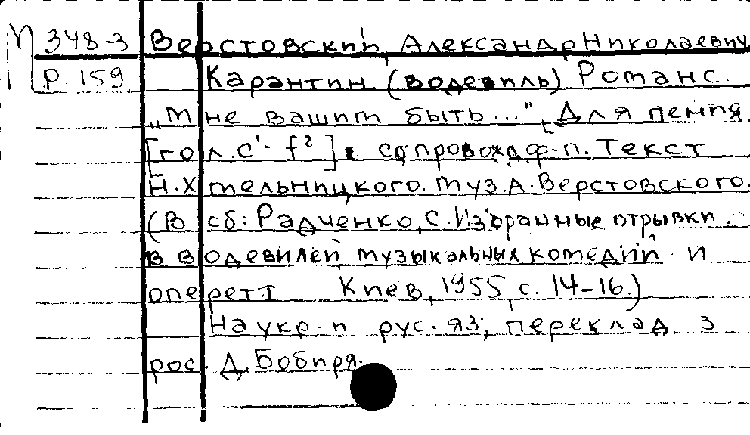 П 348-3 Верстовский, Александр Николаевич
Р 159 Карантин (водевиль) Романс
„Мне вашим быть..." Для пения
[гол. c¹- f²] сопровожд ф-п. Текст
Н. Хмельницкого. Муз. А. Верстовского.
(В сб: Радченко, С. Избранные отрывки
в водевилей музыкальных комедий и
оперетт Киев, 1955, с. 14-16.)
На укр. и рус. яз; переклад з
рос. Д. Бобиря.